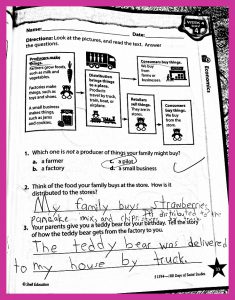 Name:
Date:
WEEK 4
DAY
Directions: Look at the pictures, and read the text. Answer
the questions.
Economics
Producers make
things.
Farmers grow foods,
such as milk and
vegetables.
Factories make
things, such as
toys and shoes.
A small business
makes things,
such as jams
and cookies.
Distribution
brings things
to a place.
Products
move by truck,
train, boat, or
airplane.
Consumers buy things.
We buy
from
farms or
businesses.
Retailers
sell things.
They are in
stores.
Consumers
buy things.
We buy
from the
store.
1. Which one is not a producer of things your family might buy?
a. a farmer
b. a factory
c. a pilot
d. a small business
2. Think of the food your family buys at the store. How is it
distributed to the stores?
My family buys strawberries,
pancake mix, and chips.
distributed to the
3. Your parents give you a teddy bear for your birthday. Tell the story
of how the teddy bear gets from the factory to you.
The teddy bear was delivered
to my house by truck.
© Shell Education
180 Days of Social Studies